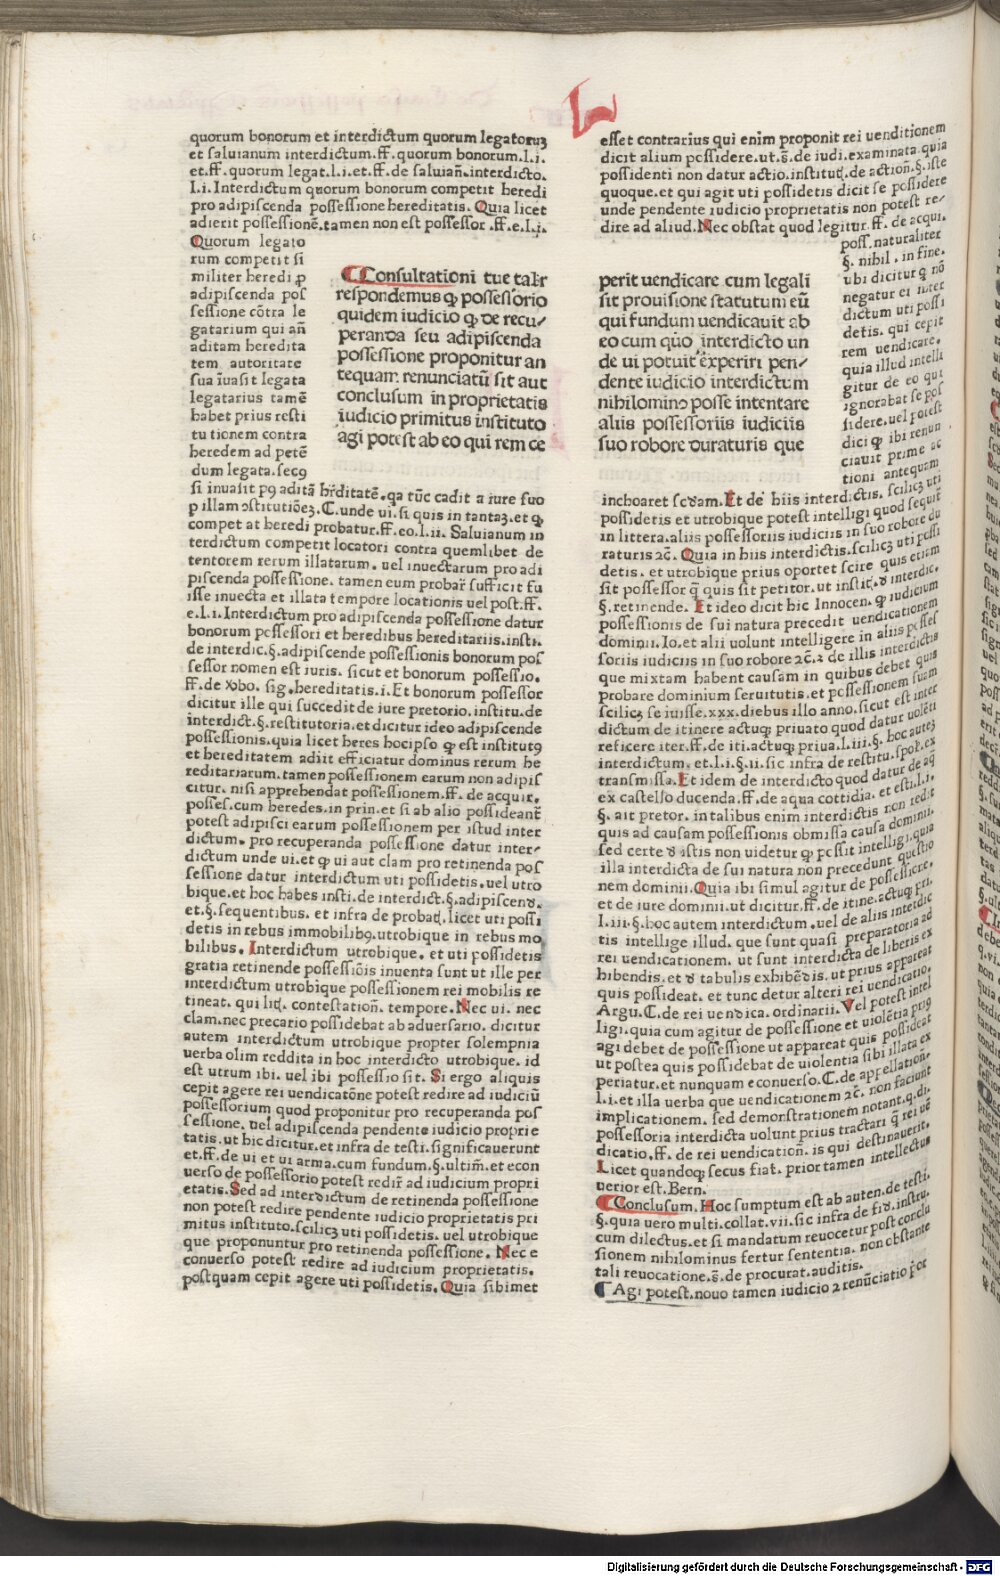 L
quorum bonorum et interdictum quorum legatoruʒ
et saluianum interdictum.ff.quorum bonorum.l.i.
et.ff.quorum legat.l.i.et.ff.de saluiañ.interdicto.
l.i.Interdictum quorum bonorum competit heredi
pro adipiscenda possessione hereditatis.Quia licet
adierit possessionē.tamen non est possessor.ff.e.l.i.
Quorum legato
rum competit si
militer heredi ꝓ
adipiscenda pos
sessione cōtra le
gatarium qui añ
aditam heredita
tem autoritate
sua īuasit legata
legatarius tamē
habet prius resti
tutionem contra
heredem ad petē
dum legata.secꝰ
si inuasit pꝰ aditā hr̄ditatē.qa tūc cadit a iure suo
ꝑ illam ɔstitutiōeʒ.C.unde ui.si quis in tantaʒ.et ꝙ
compet at heredi probatur.ff.eo.l.ii.Saluianum in
terdictum competit locatori contra quemlibet de
tentorem rerum illatarum.uel inuectarum pro adi
piscenda possessione.tamen eum probar̄ sufficit fu
isse inuecta et illata tempore locationis uel post.ff.
e.l.i.Interdictum pro adipiscenda possessione datur
bonorum possessori et heredibus hereditariis.insti.
de interdic.§.adipiscende possessionis bonorum pos
sessor nomen est iuris.sicut et bonorum possessio.
ff.de v̄bo.sig.hereditatis.i.Et bonorum possessor
dicitur ille qui succedit de iure pretorio.institu.de
interdict.§.restitutoria.et dicitur ideo adipiscende
possessionis.quia licet heres hocipso ꝙ est institutꝰ
et hereditatem adiit efficiatur dominus rerum he
reditariarum.tamen possessionem earum non adipis
citur.nisi apprehendat possessionem.ff.de acquir.
posses.cum heredes.in prin.et si ab alio possideant̄
potest adipisci earum possessionem per istud inter
dictum.pro recuperanda possessione datur inter⸗
dictum unde ui.et ꝙ ui aut clam pro retinenda pos
sessione datur interdictum uti possidetis.uel utro
bique.et hoc habes insti.de interdict.§.adipiscenđ.
et.§.sequentibus.et infra de probaꝗ̄.licet uti possi
detis in rebus immobilibꝰ.utrobique in rebus mo
bilibus.Interdictum utrobique.et uti possidetis
gratia retinende possessiōis inuenta sunt ut ille per
interdictum utrobique possessionem rei mobilis re
tineat.qui liꝗ̄.contestatioñ.tempore.Nec ui.nec
clam.nec precario possidebat ab aduersario.dicitur
autem interdictum utrobique propter solempnia
uerba olim reddita in hoc interdicto utrobique.id
est utrum ibi.uel ibi possessio sit.Si ergo aliquis
cepit agere rei uendicatōne potest redire ad iudiciū
possessorium quod proponitur pro recuperanda pos
sessione.uel adipiscenda pendente iudicio proprie
tatis.ut hic dicitur.et infra de testi.significauerunt
et.ff.de ui et ui arma.cum fundum.§.ultim̄.et econ
uerso de possessorio potest redir̄ ad iudicium propri
etatis.Sed ad interdictum de retinenda possessione
non potest redire pendente iudicio proprietatis pri
mitus instituto.scilicʒ uti possidetis.uel utrobique
que proponuntur pro retinenda possessione.Nec e
conuerso potest redire ad iudicium proprietatis.
postquam cepit agere uti possidetis.Quia sibimet
¶Consultationi tue talir̄
respondemus ꝙ possessorio
quidem iudicio ꝙ de recu⸗
peranda seu adipiscenda
possessione proponitur an
tequam renunciatū sit aut
conclusum in proprietatis
iudicio primitus instituto
agi potest ab eo qui rem ce
perit uendicare cum legali
sit prouisione statutum eū
qui fundum uendicauit ab
eo cum quo interdicto un
de ui potuit experiri pen⸗
dente iudicio interdictum
nihilominꝰ posse intentare
aliis possessoriis iudiciis
suo robore duraturis que
esset contrarius qui enim proponit rei uenditionem
dicit alium possidere.ut.s̄.de iudi.examinata.quia
possidenti non datur actio.instituꝗ̄.de actioñ.§.iste
quoque.et qui agit uti possidetis dicit se possidere
unde pendente iudicio proprietatis non potest re⸗
dire ad aliud.Nec obstat quod legitur.ff.de acqui.
poss.naturaliter
§.nihil.in fine.
ubi dicitur ꝙ nō
negatur ei inter
dictum uti possi
detis.qui cepit
rem uendicare.
quia illud intelli
gitur de eo qui
ignorabat se pos
sidere.uel potest
dici ꝙ ibi renun
ciauit prime ac
tioni antequam
inchoaret secđam.Et de hiis interdictis.scilicʒ uti
possidetis et utrobique potest intelligi quod sequit̄
in littera.aliis possessoriis iudiciis in suo robore du
raturis ⁊c̄.Quia in hiis interdictis.scilicʒ uti possi
detis.et utrobique prius oportet scire quis etiam
sit possessor q̄ quis sit petitor.ut instiꝗ̄.đ interdic.
§.retinende.Et ideo dicit hic Innocen.ꝙ iudicium
possessionis de sui natura precedit uendicationem
dominii.Io.et alii uolunt intelligere in aliis posses
soriis iudiciis in suo robore ⁊c̄.⁊ de illis interdictis
que mixtam habent causam in quibus debet quis
probare dominium seruitutis.et possessionem suam
scilicʒ se iuisse.xxx.diebus illo anno.sicut est inter
dictum de itinere actuqʒ priuato quod datur uolēti
reficere iter.ff.de iti.actuqʒ priua.l.iii.§.hoc auteʒ
interdictum.et.l.i.§.ii.sic infra de restitu.spol.ex
transmissa.Et idem de interdicto quod datur de aq̄
ex castello ducenda.ff.de aqua cottidia.et esti.l.i.
§.ait pretor.in talibus enim interdictis non redit
quis ad causam possessionis obmissa causa dominii.
sed certe đ istis non uidetur ꝙ possit intelligi.quia
illa interdicta de sui natura non precedunt questio
nem dominii.Quia ibi simul agitur de possessione.
et de iure dominii.ut dicitur.ff.de itine.actuqʒ pri.
l.iii.§.hoc autem interdictum.uel de aliis interdic
tis intellige illud.que sunt quasi preparatoria ad
rei uendicationem.ut sunt interdicta de liberis ex
hibendis.et đ tabulis exhibēdis.ut prius appareat
quis possideat.et tunc detur alteri rei uendicatio.
Argu.C.de rei uendica.ordinarii.Vel potest intel
ligi.quia cum agitur de possessione et uiolētia priꝰ
agi debet de possessione ut appareat quis possideat
ut postea quis possidebat de uiolentia sibi illata ex
periatur.et nunquam econuerso.C.de appellation.
l.i.et illa uerba que uendicationem ⁊c̄.non faciunt
implicationem.sed demonstrationem notant.q.di.
possessoria interdicta uolunt prius tractari q̄ rei uē
dicatio.ff.de rei uendicatioñ.is qui destinauerit.
Licet quandoqʒ secus fiat.prior tamen intellectus
uerior est.Bern.
¶Conclusum.Hoc sumptum est ab auten.de testi.
§.quia uero multi.collat.vii.sic infra de fid.instru.
cum dilectus.et si mandatum reuocetur post conclu
sionem nihilominus fertur sententia.non obstante
tali reuocatione.s̄.de procurat.auditis.
¶Agi potest.nouo tamen iudicio ⁊ renūciatio for
Digitalisierung gefördert durch die Deutsche Forschungsgemeinschaft - DFG